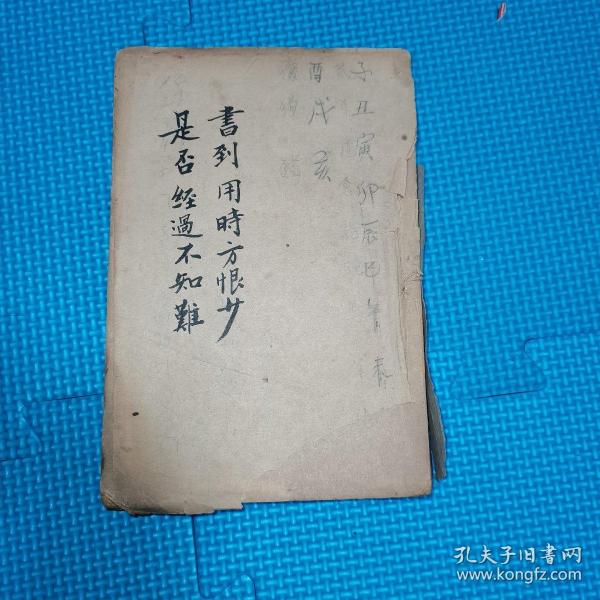 子丑寅卯辰巳
酉戌亥
書到用時方恨少
是否經過不知難
孔夫子旧書网
www.kongfz.com